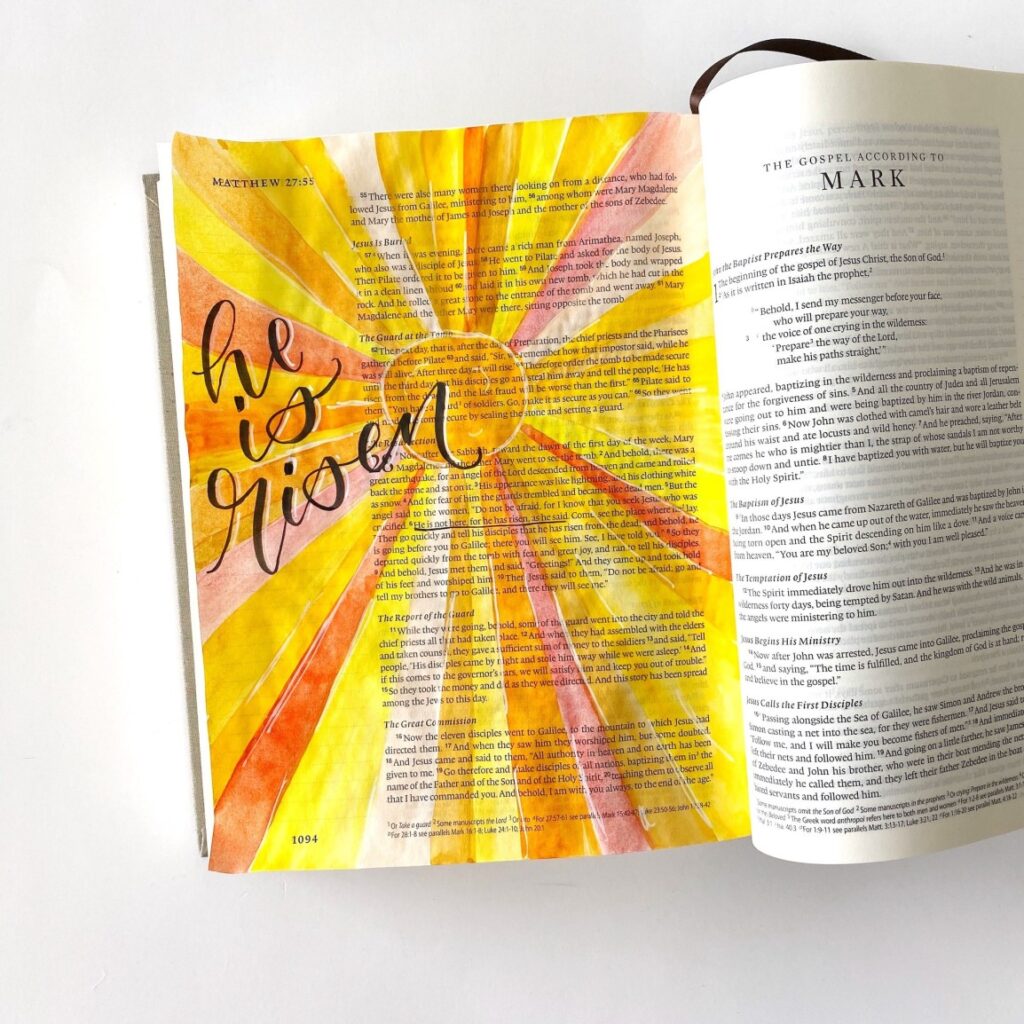 MATTHEW 27:55
he
is
risen
55 There were also many women there, looking on from a distance, who had fol-
lowed Jesus from Galilee, ministering to him, 56 among whom were Mary Magdalene
and Mary the mother of James and Joseph and the mother of the sons of Zebedee.
Jesus Is Buried
57 When it was evening, there came a rich man from Arimathea, named Joseph,
who also was a disciple of Jesus. 58 He went to Pilate and asked for the body of Jesus.
Then Pilate ordered it to be given to him. 59 And Joseph took the body and wrapped
it in a clean linen shroud 60 and laid it in his own new tomb, which he had cut in the
rock. And he rolled a great stone to the entrance of the tomb and went away. 61 Mary
Magdalene and the other Mary were there, sitting opposite the tomb.
The Guard at the Tomb
62 The next day, that is, after the day of Preparation, the chief priests and the Pharisees
gathered before Pilate 63 and said, "Sir, we remember how that impostor said, while he
was still alive, 'After three days I will rise.' 64 Therefore order the tomb to be made secure
until the third day, lest his disciples go and steal him away and tell the people, 'He has
risen from the dead,' and the last fraud will be worse than the first." 65 Pilate said to
them, "You have a guard of soldiers. Go, make it as secure as you can." 66 So they went
and made the tomb secure by sealing the stone and setting a guard.
The Resurrection
Now after the Sabbath, toward the dawn of the first day of the week, Mary
Magdalene and the other Mary went to see the tomb. 2 And behold, there was a
great earthquake, for an angel of the Lord descended from heaven and came and rolled
back the stone and sat on it. 3 His appearance was like lightning, and his clothing white
as snow. 4 And for fear of him the guards trembled and became like dead men. 5 But the
angel said to the women, "Do not be afraid, for I know that you seek Jesus who was
crucified. 6 He is not here, for he has risen, as he said. Come, see the place where he lay.
7 Then go quickly and tell his disciples that he has risen from the dead, and behold, he
is going before you to Galilee; there you will see him. See, I have told you." 8 So they
departed quickly from the tomb with fear and great joy, and ran to tell his disciples.
9 And behold, Jesus met them and said, "Greetings!" And they came up and took hold
of his feet and worshiped him. 10 Then Jesus said to them, "Do not be afraid; go and
tell my brothers to go to Galilee, and there they will see me."
The Report of the Guard
11 While they were going, behold, some of the guard went into the city and told the
chief priests all that had taken place. 12 And when they had assembled with the elders
and taken counsel, they gave a sufficient sum of money to the soldiers 13 and said, "Tell
people, 'His disciples came by night and stole him away while we were asleep.' 14 And
if this comes to the governor's ears, we will satisfy him and keep you out of trouble."
15 So they took the money and did as they were directed. And this story has been spread
among the Jews to this day.
The Great Commission
16 Now the eleven disciples went to Galilee, to the mountain to which Jesus had
directed them. 17 And when they saw him they worshiped him, but some doubted.
18 And Jesus came and said to them, "All authority in heaven and on earth has been
given to me. 19 Go therefore and make disciples of all nations, baptizing them in2 the
name of the Father and of the Son and of the Holy Spirit, 20 teaching them to observe all
that I have commanded you. And behold, I am with you always, to the end of the age."
1 Or Take a guard 2 Or into
1094
THE GOSPEL ACCORDING TO
MARK
the Baptist Prepares the Way
The beginning of the gospel of Jesus Christ, the Son of God.1
2 As it is written in Isaiah the prophet,2
"Behold, I send my messenger before your face,
who will prepare your way,
3 the voice of one crying in the wilderness:
'Prepare3 the way of the Lord,
make his paths straight,'"
appeared, baptizing in the wilderness and proclaiming a baptism of repen-
for the forgiveness of sins. 5 And all the country of Judea and all Jerusalem
going out to him and were being baptized by him in the river Jordan, con-
their sins. 6 Now John was clothed with camel's hair and wore a leather belt
around his waist and ate locusts and wild honey. 7 And he preached, saying, "After
me comes he who is mightier than I, the strap of whose sandals I am not worthy
to stoop down and untie. 8 I have baptized you with water, but he will baptize you
with the Holy Spirit."
The Baptism of Jesus
9 In those days Jesus came from Nazareth of Galilee and was baptized by John in
the Jordan. 10 And when he came up out of the water, immediately he saw the heavens
being torn open and the Spirit descending on him like a dove. 11 And a voice came
from heaven, "You are my beloved Son;4 with you I am well pleased."
The Temptation of Jesus
12 The Spirit immediately drove him out into the wilderness. 13 And he was in
wilderness forty days, being tempted by Satan. And he was with the wild animals,
the angels were ministering to him.
Jesus Begins His Ministry
14 Now after John was arrested, Jesus came into Galilee, proclaiming the gospel
God, 15 and saying, "The time is fulfilled, and the kingdom of God is at hand;
and believe in the gospel."
Jesus Calls the First Disciples
16 Passing alongside the Sea of Galilee, he saw Simon and Andrew the
Simon casting a net into the sea, for they were fishermen. 17 And Jesus said
"Follow me, and I will make you become fishers of men." 18 And immediately
left their nets and followed him. 19 And going on a little farther, he saw James
of Zebedee and John his brother, who were in their boat mending the nets
immediately he called them, and they left their father Zebedee in the boat
hired servants and followed him.